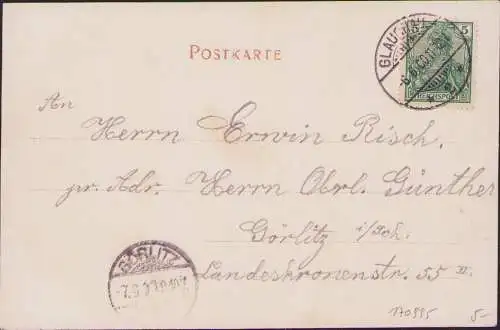 POSTKARTE
5
REICHSPOST
GLAUCHAU
An
Herrn Erwin Risch.
pr. Adr. Herrn Obrl. Günther
Görlitz i/Sch.
Landeskronenstr. 55 II.
GÖRLITZ
170995
5-